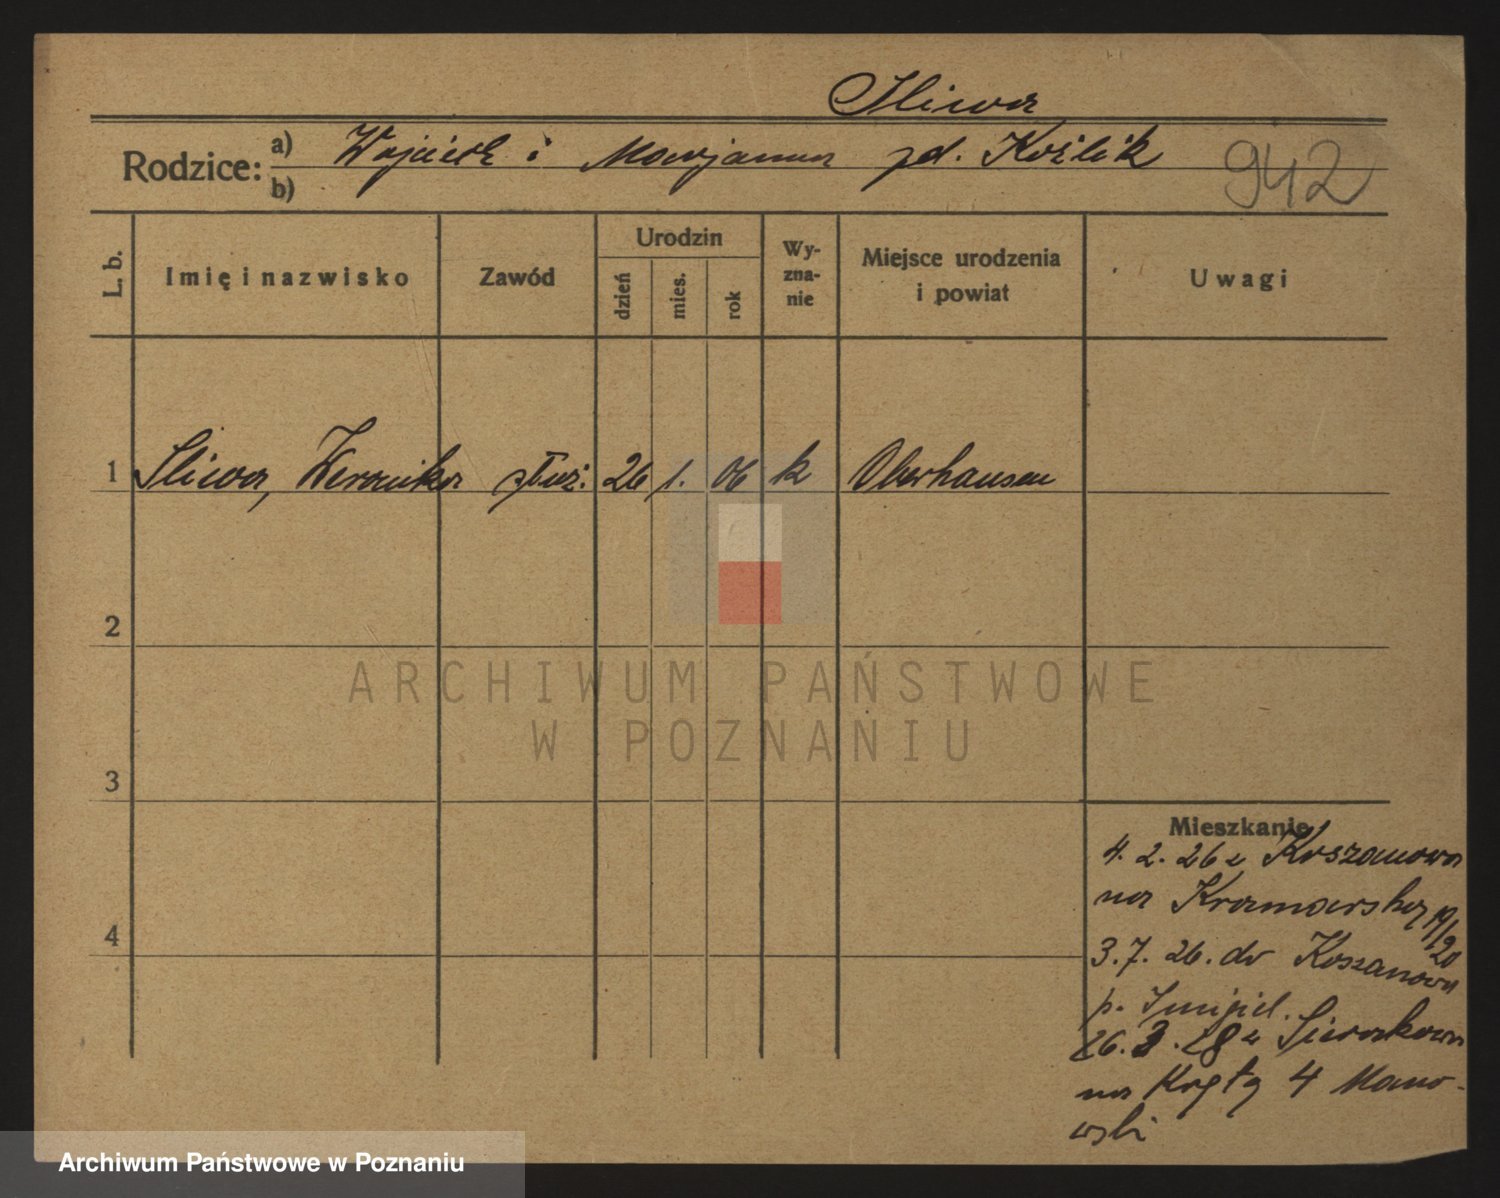 Sliwa
Rodzice: a) Wojciech i Marjanna zd. Koźlik 942
b)
L. b. Imię i nazwisko Zawód Urodzin dzień mies. rok Wy-zna-nie Miejsce urodzenia i powiat Uwagi
1 Sliwa, Weronika służ. 26 1. 06 k Oberhausen
2
3
4
Mieszkanie
4. 2. 26 z Koszanowa
na Kramarską 19/20
3. 7. 26. do Koszanowa
p. Śmigiel.
26. 3. 28 z Sierakowa
na Krętą 4 Mano-
wski
ARCHIWUM PAŃSTWOWE
W POZNANIU
Archiwum Państwowe w Poznaniu